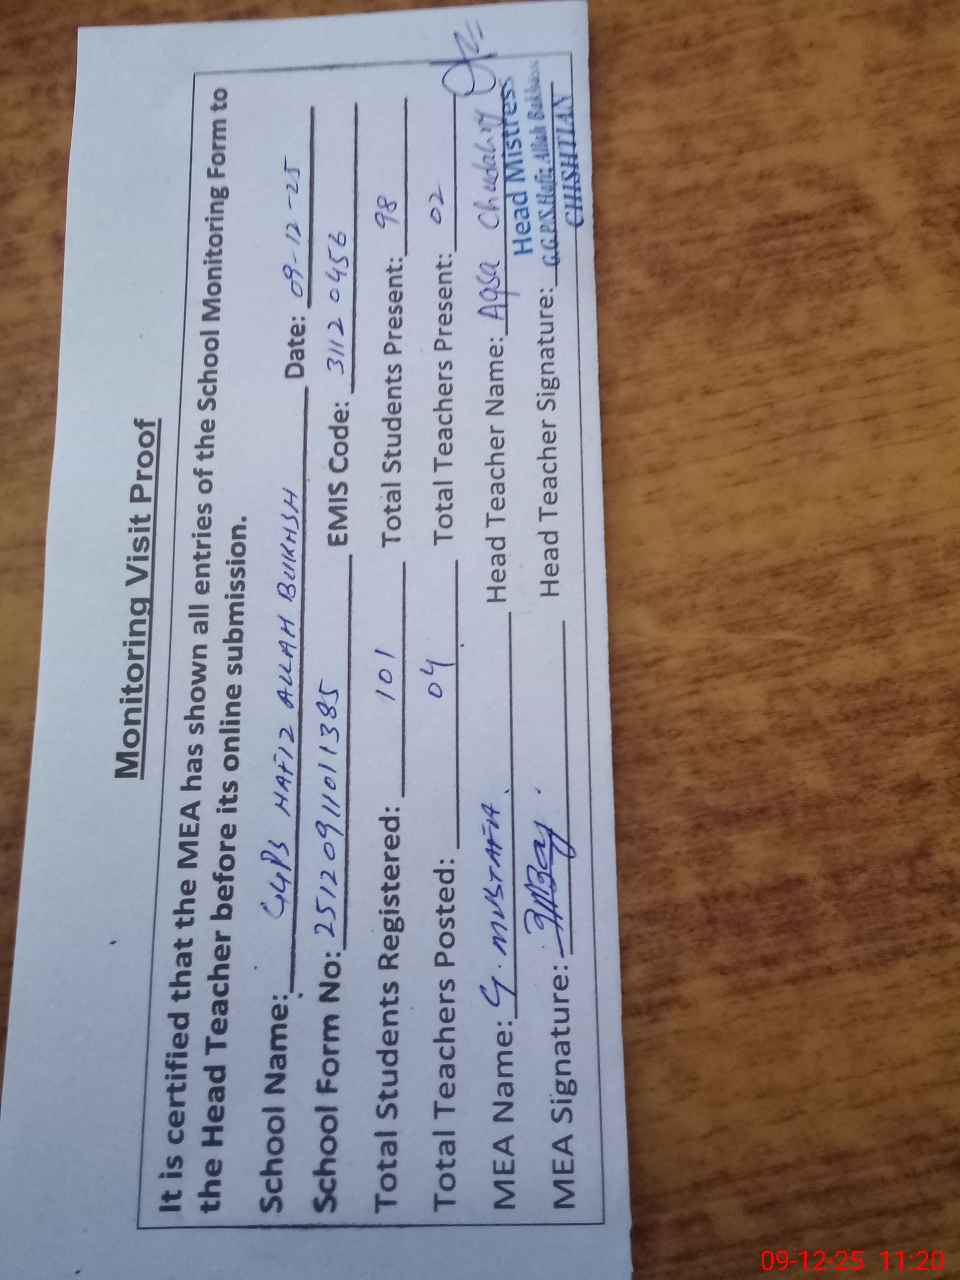 Monitoring Visit Proof
It is certified that the MEA has shown all entries of the School Monitoring Form to
the Head Teacher before its online submission.
School Name: GGPS HAFIZ ALLAH BUKHSH Date: 09-12-25
School Form No: 251209110111385 EMIS Code: 31120456
Total Students Registered: 101 Total Students Present: 98
Total Teachers Posted: 04 Total Teachers Present: 02
MEA Name: G. MUSTAFA Head Teacher Name: Aqsa Chudahry
Head Mistress
MEA Signature: Head Teacher Signature: G.G.P.S Hafiz Allah Bakhsh
CHISHTIAN
09-12-25 11:20